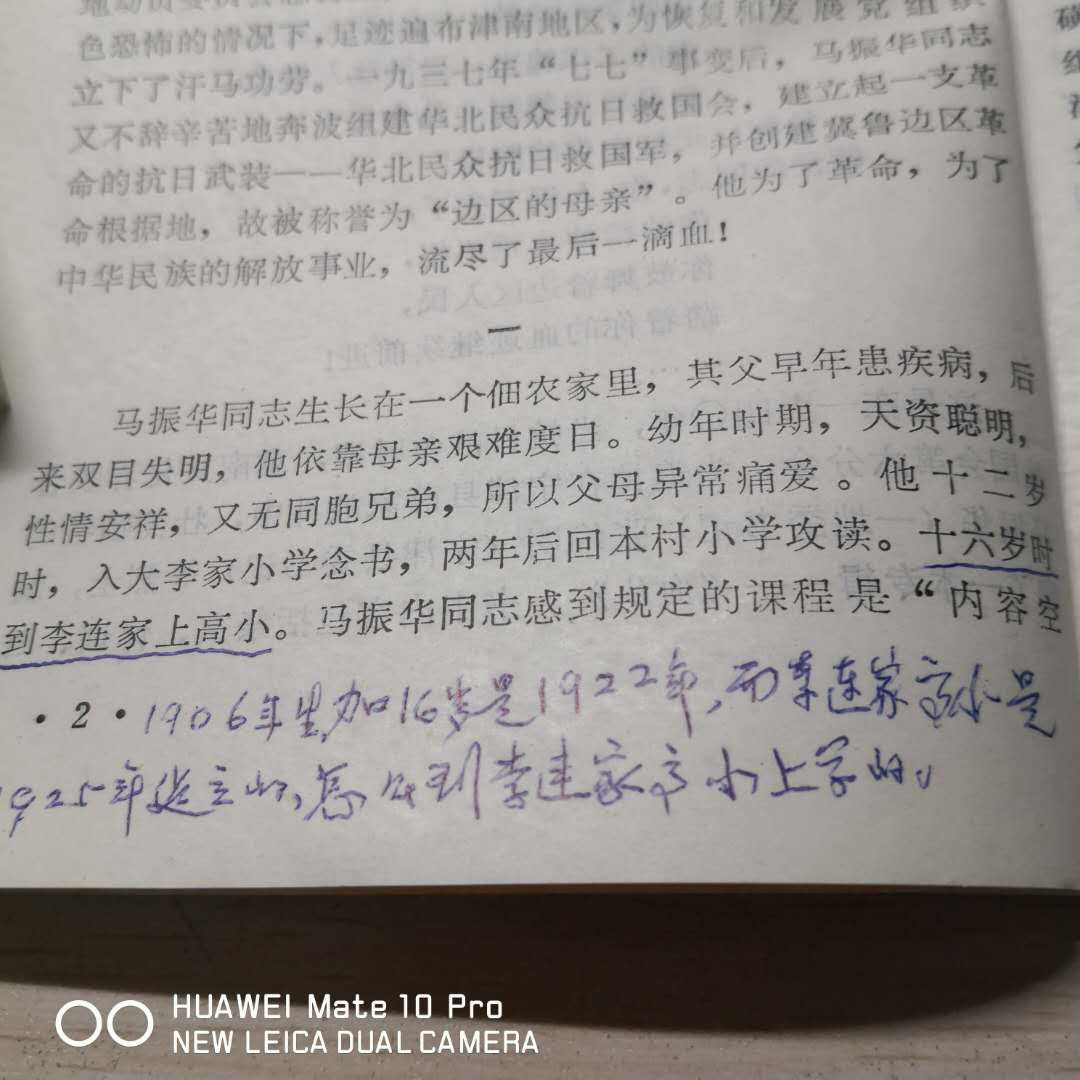 色恐怖的情况下，足迹遍布津南地区，为恢复和发展党组织
立下了汗马功劳。一九三七年“七七”事变后，马振华同志
又不辞辛苦地奔波组建华北民众抗日救国会，建立起一支革
命的抗日武装——华北民众抗日救国军，并创建冀鲁边区革
命根据地，故被称誉为“边区的母亲”。他为了革命，为了
中华民族的解放事业，流尽了最后一滴血！
一
马振华同志生长在一个佃农家里，其父早年患疾病，后
来双目失明，他依靠母亲艰难度日。幼年时期，天资聪明，
性情安祥，又无同胞兄弟，所以父母异常痛爱。他十二岁
时，入大李家小学念书，两年后回本村小学攻读。十六岁时
到李连家上高小。马振华同志感到规定的课程是“内容空
·2·
1906年生,加16岁是1922年,而李连家高小是
1925年建立的,怎么到李连家高小上学的
HUAWEI Mate 10 Pro
NEW LEICA DUAL CAMERA